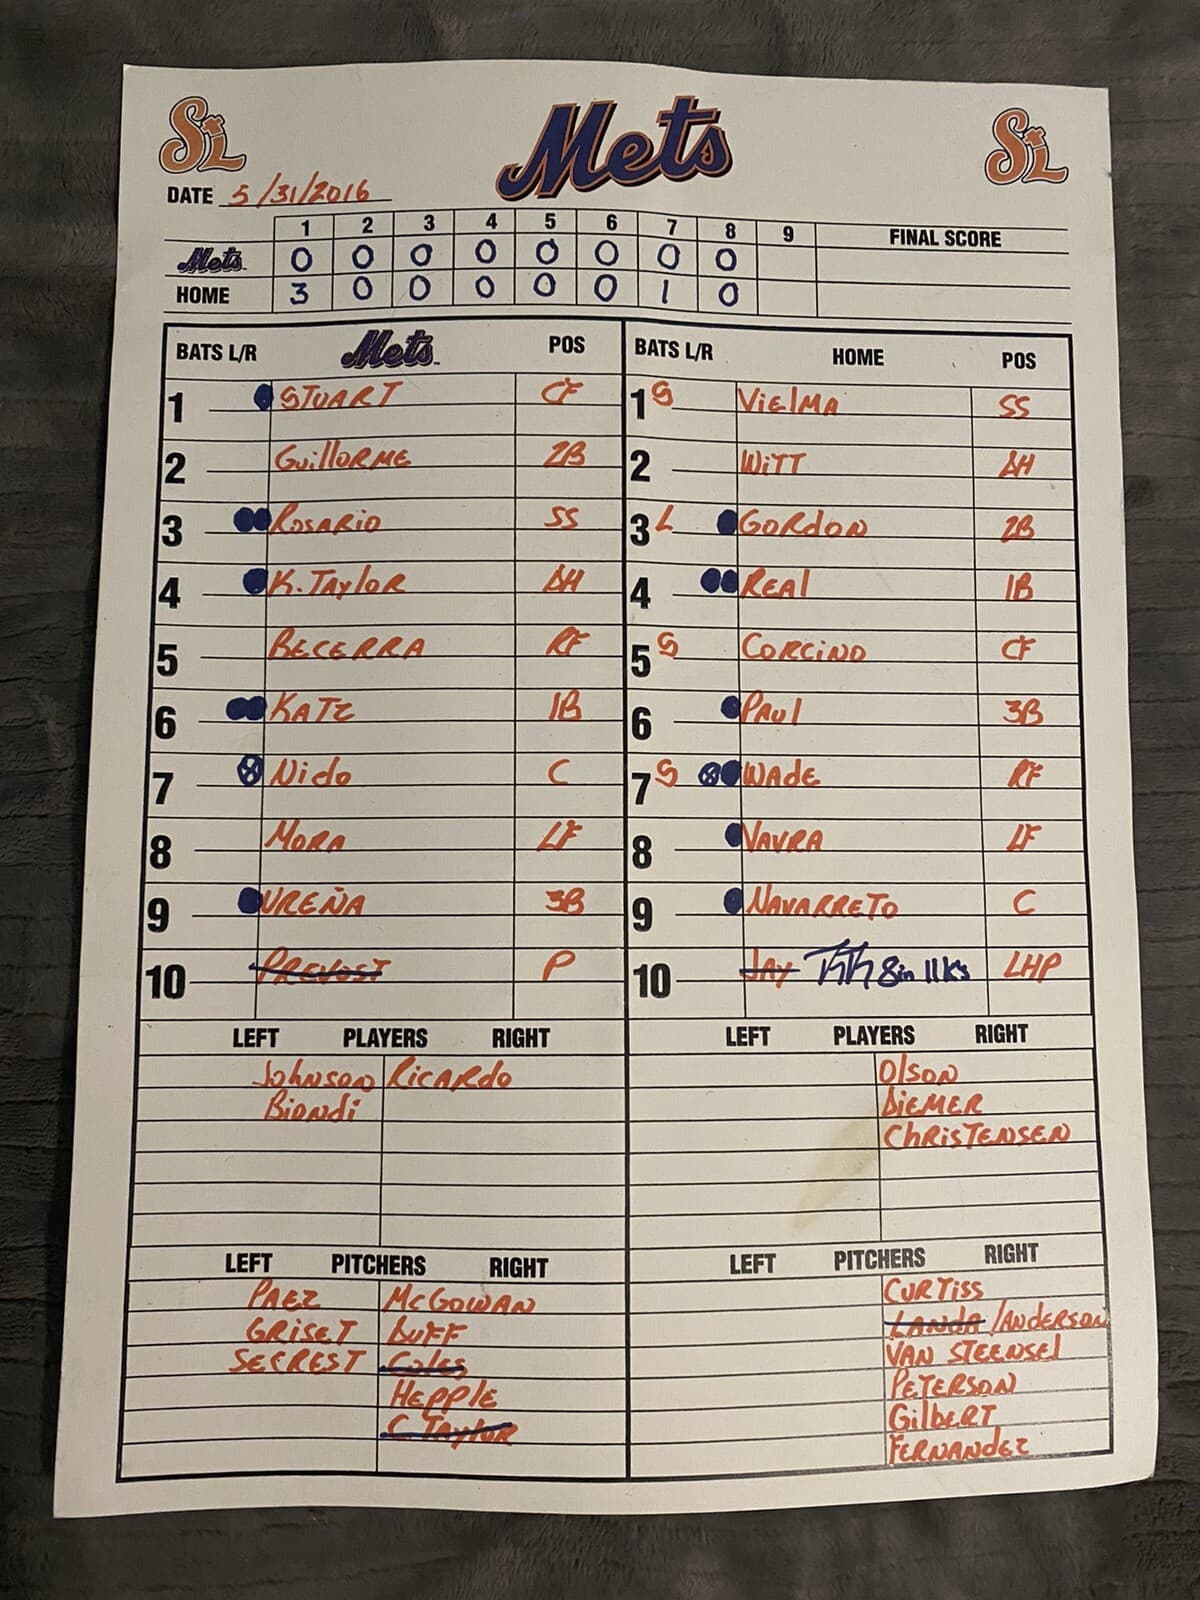 SL Mets SL
DATE 5/31/2016
1 2 3 4 5 6 7 8 9 FINAL SCORE
Mets 0 0 0 0 0 0 0 0
HOME 3 0 0 0 0 0 1 0
BATS L/R Mets POS BATS L/R HOME POS
1 STUART CF 1 S VIELMA SS
2 GUILLORME 2B 2 WITT DH
3 ROSARIO SS 3 L GORDON 2B
4 K. TAYLOR DH 4 REAL 1B
5 BECERRA RF 5 S CORCINO CF
6 KATZ 1B 6 PAUL 3B
7 NIDO C 7 S WADE RF
8 MORA LF 8 VAVRA LF
9 UREÑA 3B 9 NAVARRETO C
10 PREVOST P 10 JAY 8in 11K's LHP
LEFT PLAYERS RIGHT LEFT PLAYERS RIGHT
JOHNSON RICARDO OLSON
BIONDI DIEMER
CHRISTENSEN
LEFT PITCHERS RIGHT LEFT PITCHERS RIGHT
PAEZ MCGOWAN CURTISS
GRISET DUFF LANDA /ANDERSON
SECREST COLES VAN STEENSEL
HEPPLE PETERSON
C. TAYLOR GILBERT
FERNANDEZ